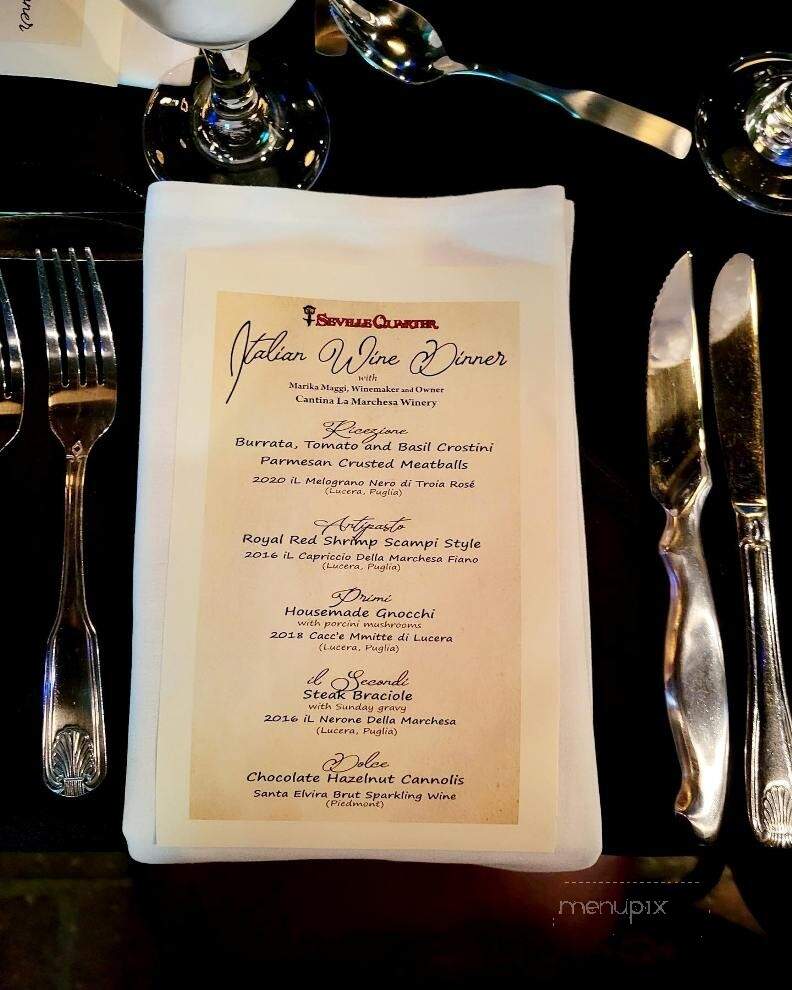 nner
Seville Quarter
Italian Wine Dinner
with
Marika Maggi, Winemaker and Owner
Cantina La Marchesa Winery
Ricezione
Burrata, Tomato and Basil Crostini
Parmesan Crusted Meatballs
2020 iL Melograno Nero di Troia Rosé
(Lucera, Puglia)
Artipasto
Royal Red Shrimp Scampi Style
2016 iL Capriccio Della Marchesa Fiano
(Lucera, Puglia)
Primi
Housemade Gnocchi
with porcini mushrooms
2018 Cacc'e Mmitte di Lucera
(Lucera, Puglia)
il Secondi
Steak Braciole
with Sunday gravy
2016 iL Nerone Della Marchesa
(Lucera, Puglia)
Dolce
Chocolate Hazelnut Cannolis
Santa Elvira Brut Sparkling Wine
(Piedmont)
menupix